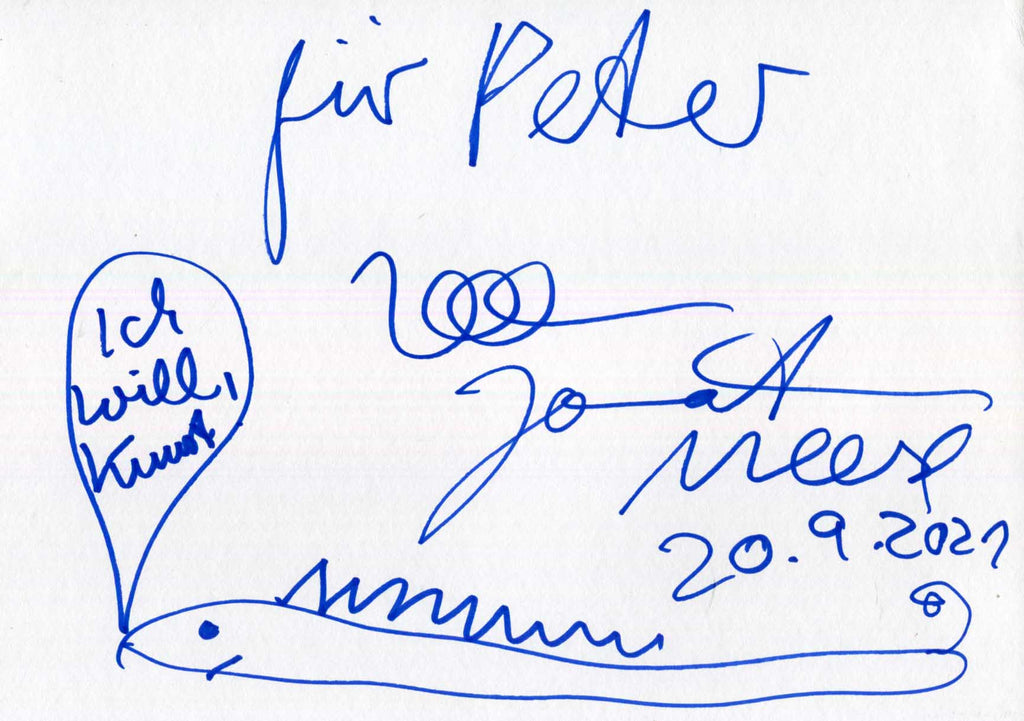 für Peter
Jonat
Meese
20.9.2021
Ich
will,
Kunst